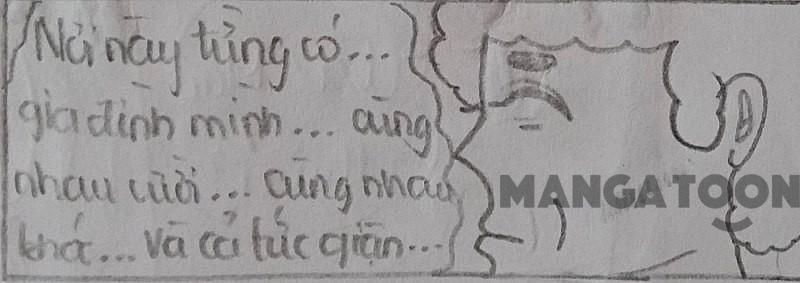 Nơi này từng có...
gia đình mình... cùng
nhau cười... cùng nhau
khó... và cả lúc giận...
MANGATOON